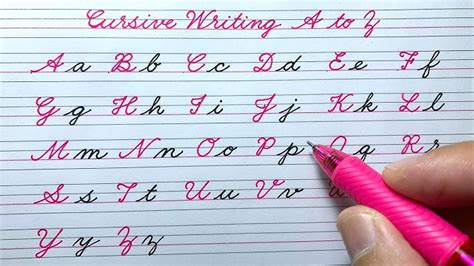 Cursive Writing A to Z
A a B b C c D d E e F f
G g H h I i J j K k L l
M m N n O o P p Q q R r
S s T t U u V v
Y y Z z